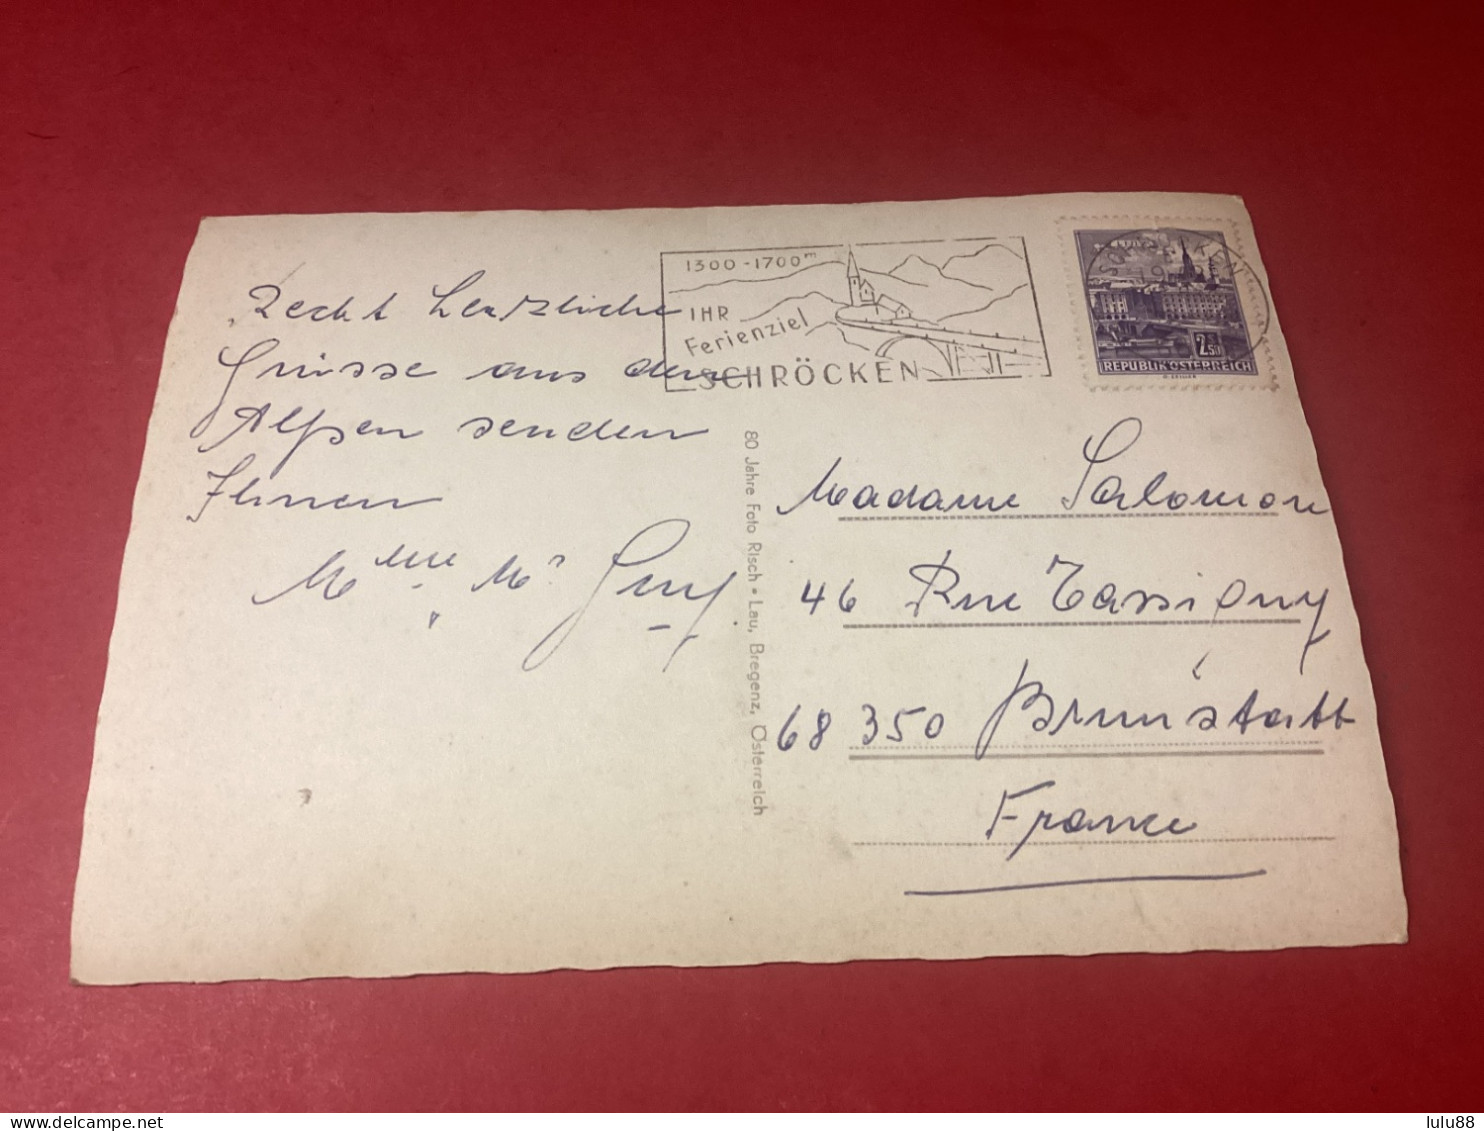 Recht herzliche
Grüsse aus den
Alpen senden
Ihnen
Mme Mr
1300-1700m
IHR
Ferienziel
SCHRÖCKEN
SCHRÖCKEN
2.50
REPUBLIK ÖSTERREICH
80 Jahre Foto Risch • Lau, Bregenz, Österreich
Madame Salomon
46 Rue Tassigny
68 350 Brunstatt
France
lulu88